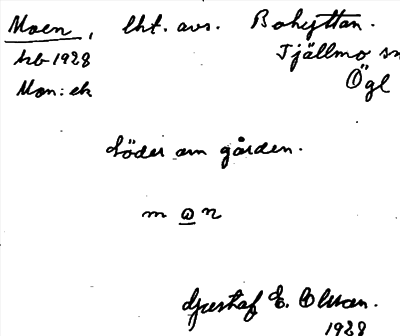 Moen, lht. avs. Bohyttan.
hb 1928 Tjällmo sn
Mon: ek Ögl
Söder om gården.
m o n
Gustaf E. Olsson.
1928